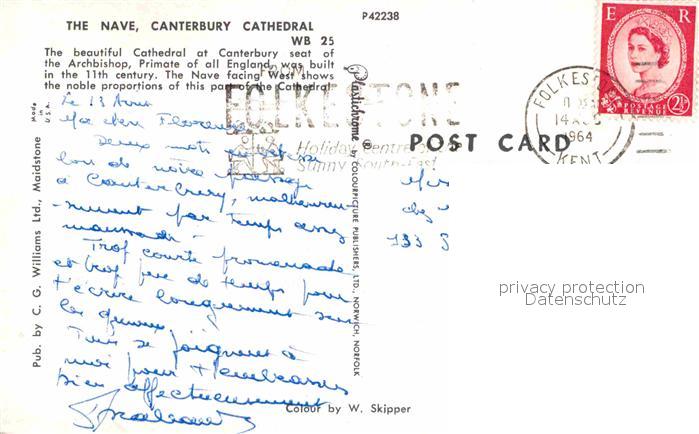 THE NAVE, CANTERBURY CATHEDRAL
WB 25
The beautiful Cathedral at Canterbury seat of
the Archbishop, Primate of all England, was built
in the 11th century. The Nave facing West shows
the noble proportions of this part of the Cathedral
P42238
Made
U.S.A.
Pub. by C. G. Williams Ltd., Maidstone
Plastichrome ® by COLOURPICTURE PUBLISHERS, LTD., NORWICH, NORFOLK
FROM
FOLKESTONE
Holiday Centre
Sunny South-East
POST CARD
E R
POSTAGE
REVENUE
2½
FOLKESTONE
14
1964
KENT
Le 13 Août
Ma chère Florence
Deux mots
de notre passage
à Canterbury, malheureu-
-sement par temps assez
maussade.
Trop courte promenade
et trop peu de temps pour
t'écrire longuement
Tous se joignent à
moi pour t'embrasser
bien affectueusement
chez
133
privacy protection
Datenschutz
Colour by W. Skipper